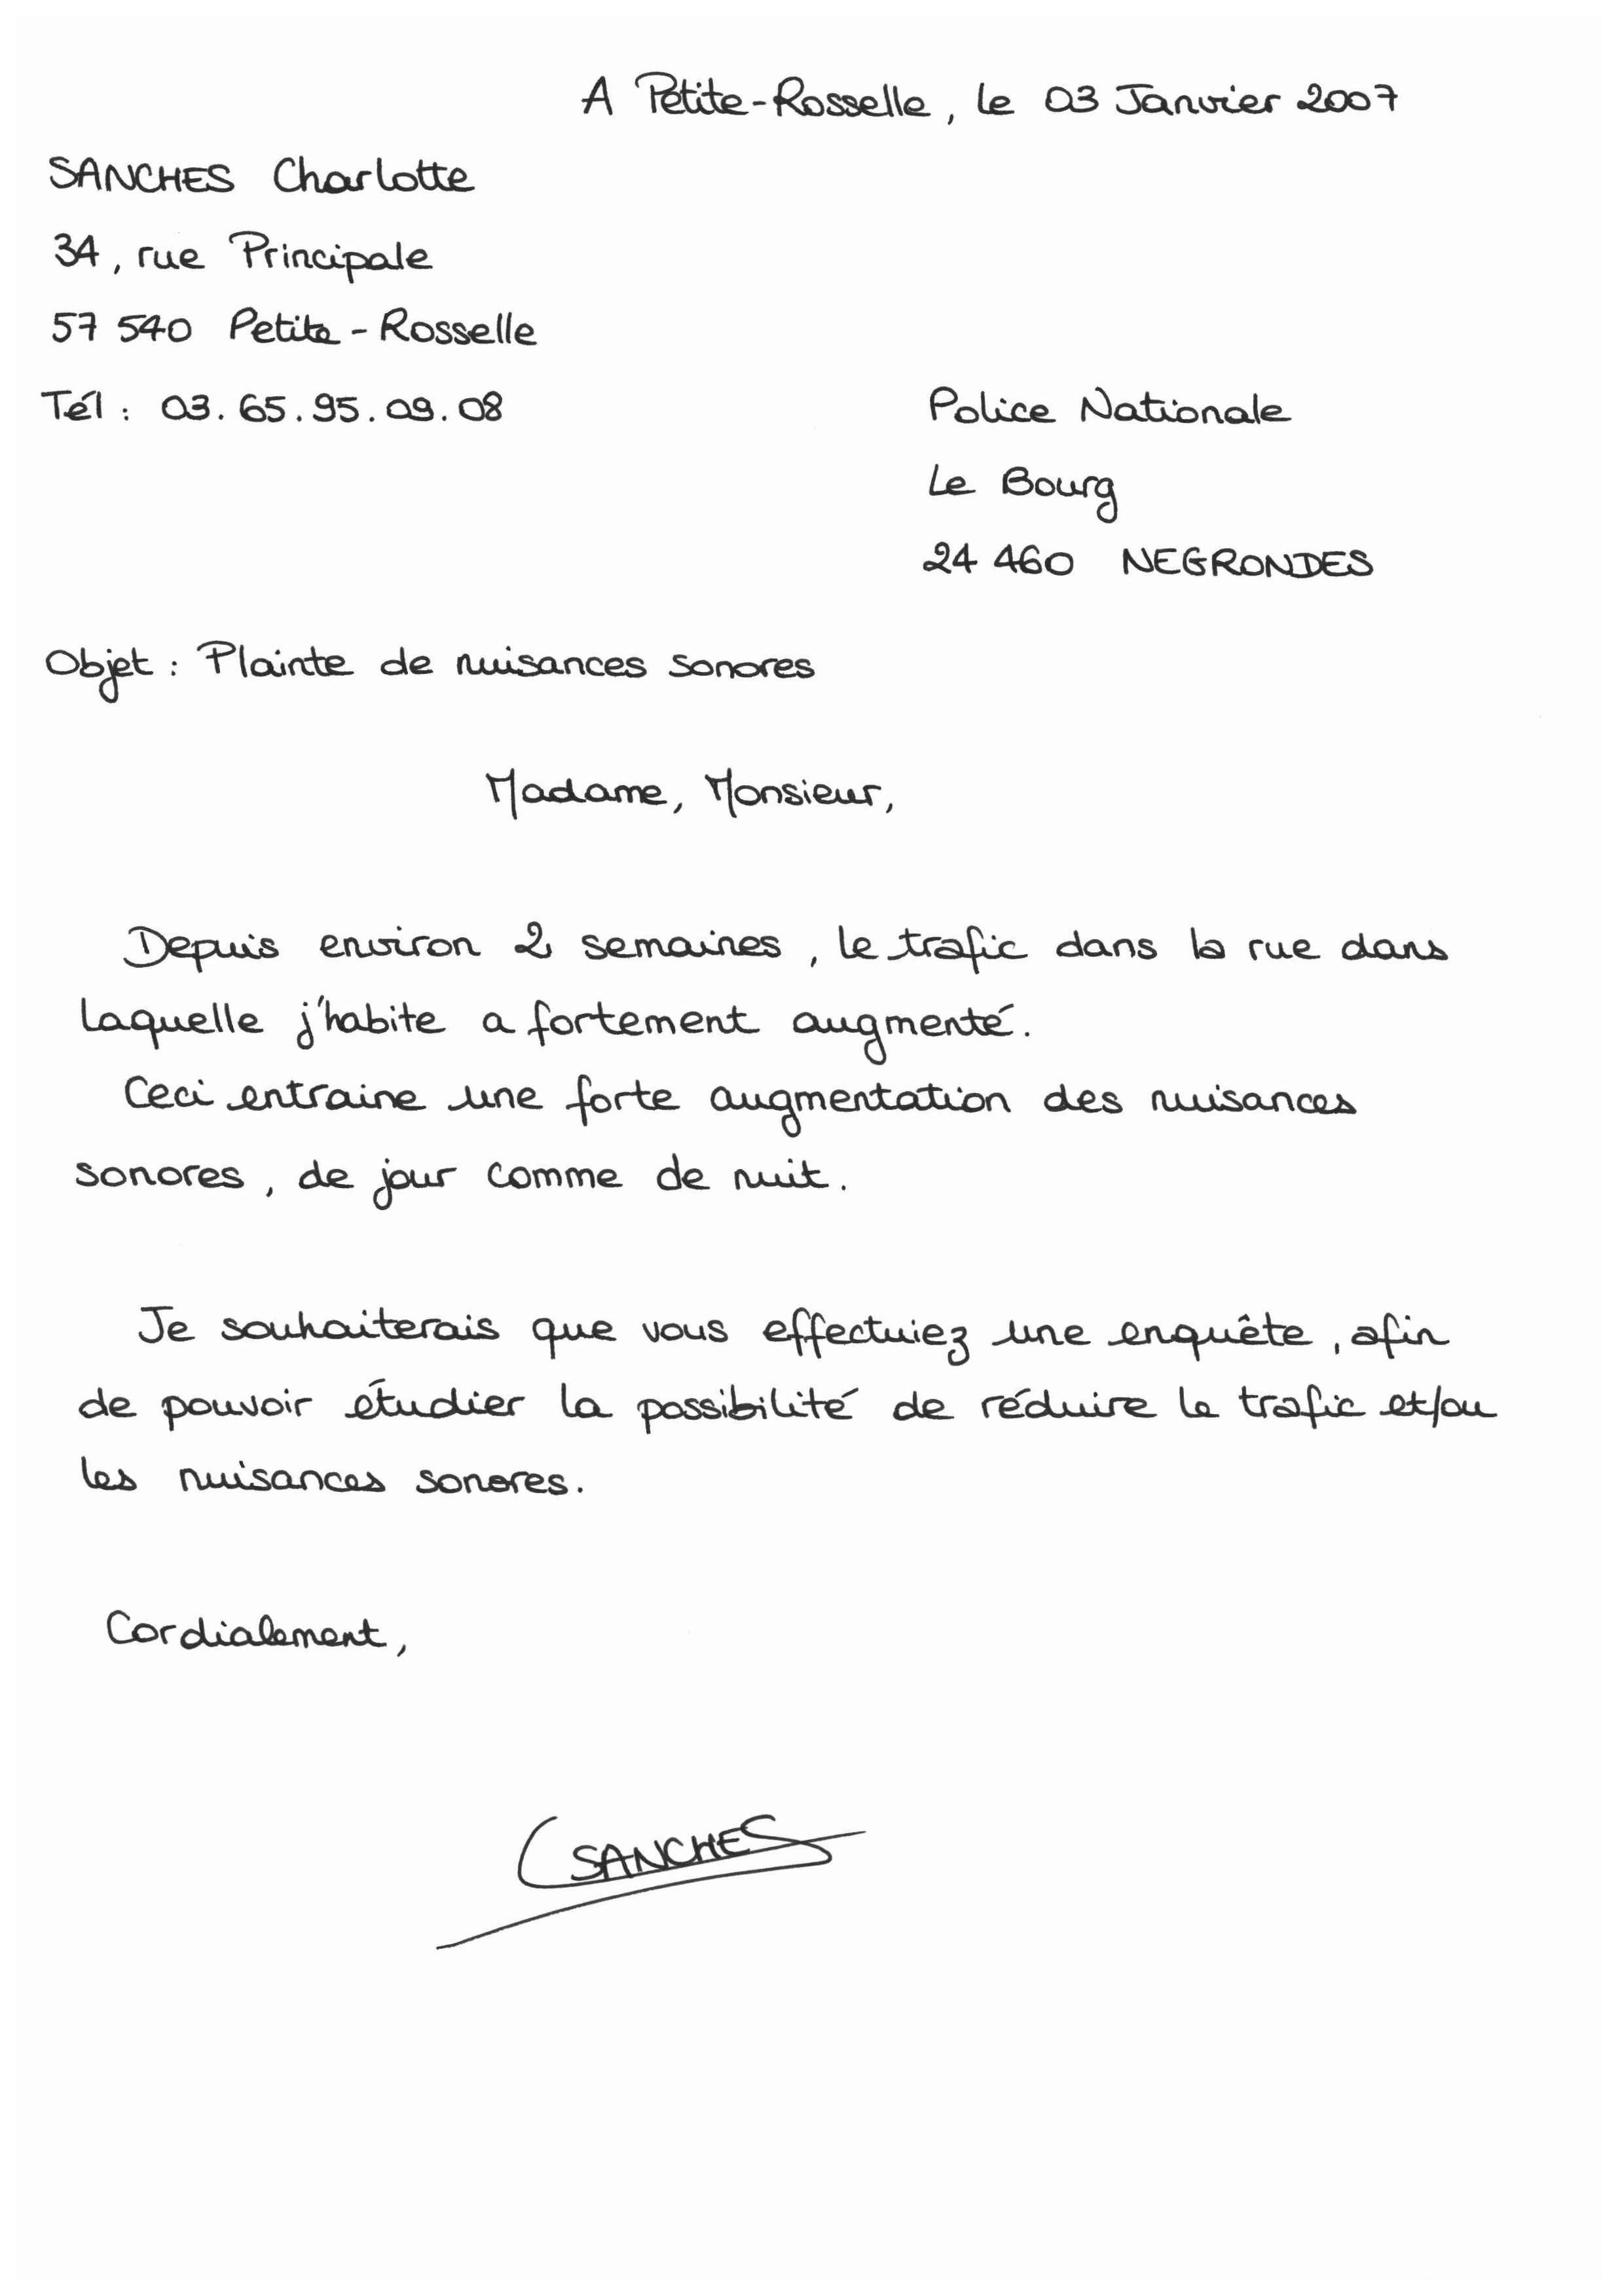 A Petite-Rosselle, le 03 Janvier 2007
SANCHES Charlotte
34, rue Principale
57 540 Petite-Rosselle
Tél : 03.65.95.09.08
Police Nationale
Le Bourg
24 460 NEGRONDES
Objet : Plainte de nuisances sonores
Madame, Monsieur,
Depuis environ 2 semaines, le trafic dans la rue dans
laquelle j'habite a fortement augmenté.
Ceci entraine une forte augmentation des nuisances
sonores, de jour comme de nuit.
Je souhaiterais que vous effectuiez une enquête, afin
de pouvoir étudier la possibilité de réduire le trafic et/ou
les nuisances sonores.
Cordialement,
CSANCHES